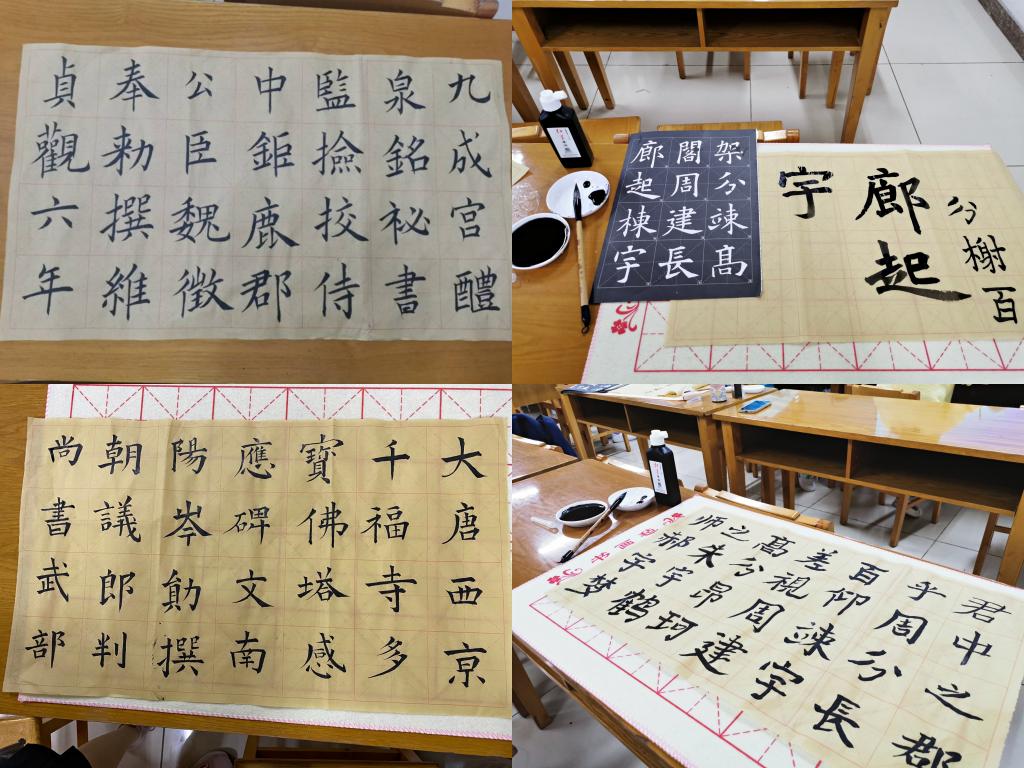 九成宮醴
泉銘祕書
監撿挍侍
中鉅鹿郡
公臣魏徵
奉勅撰維
貞觀六年
架分竦髙
閣周建長
廊起棟宇
分榭百
廊起
宇
大唐西亰
千福寺多
寶佛塔感
應碑文南
陽岑勛撰
朝議郎判
尚書武部
君中之郡
乎周分長
百仰竦宇
差視周建
髙分昂珂
之朱宇鹤
师郝宇梦